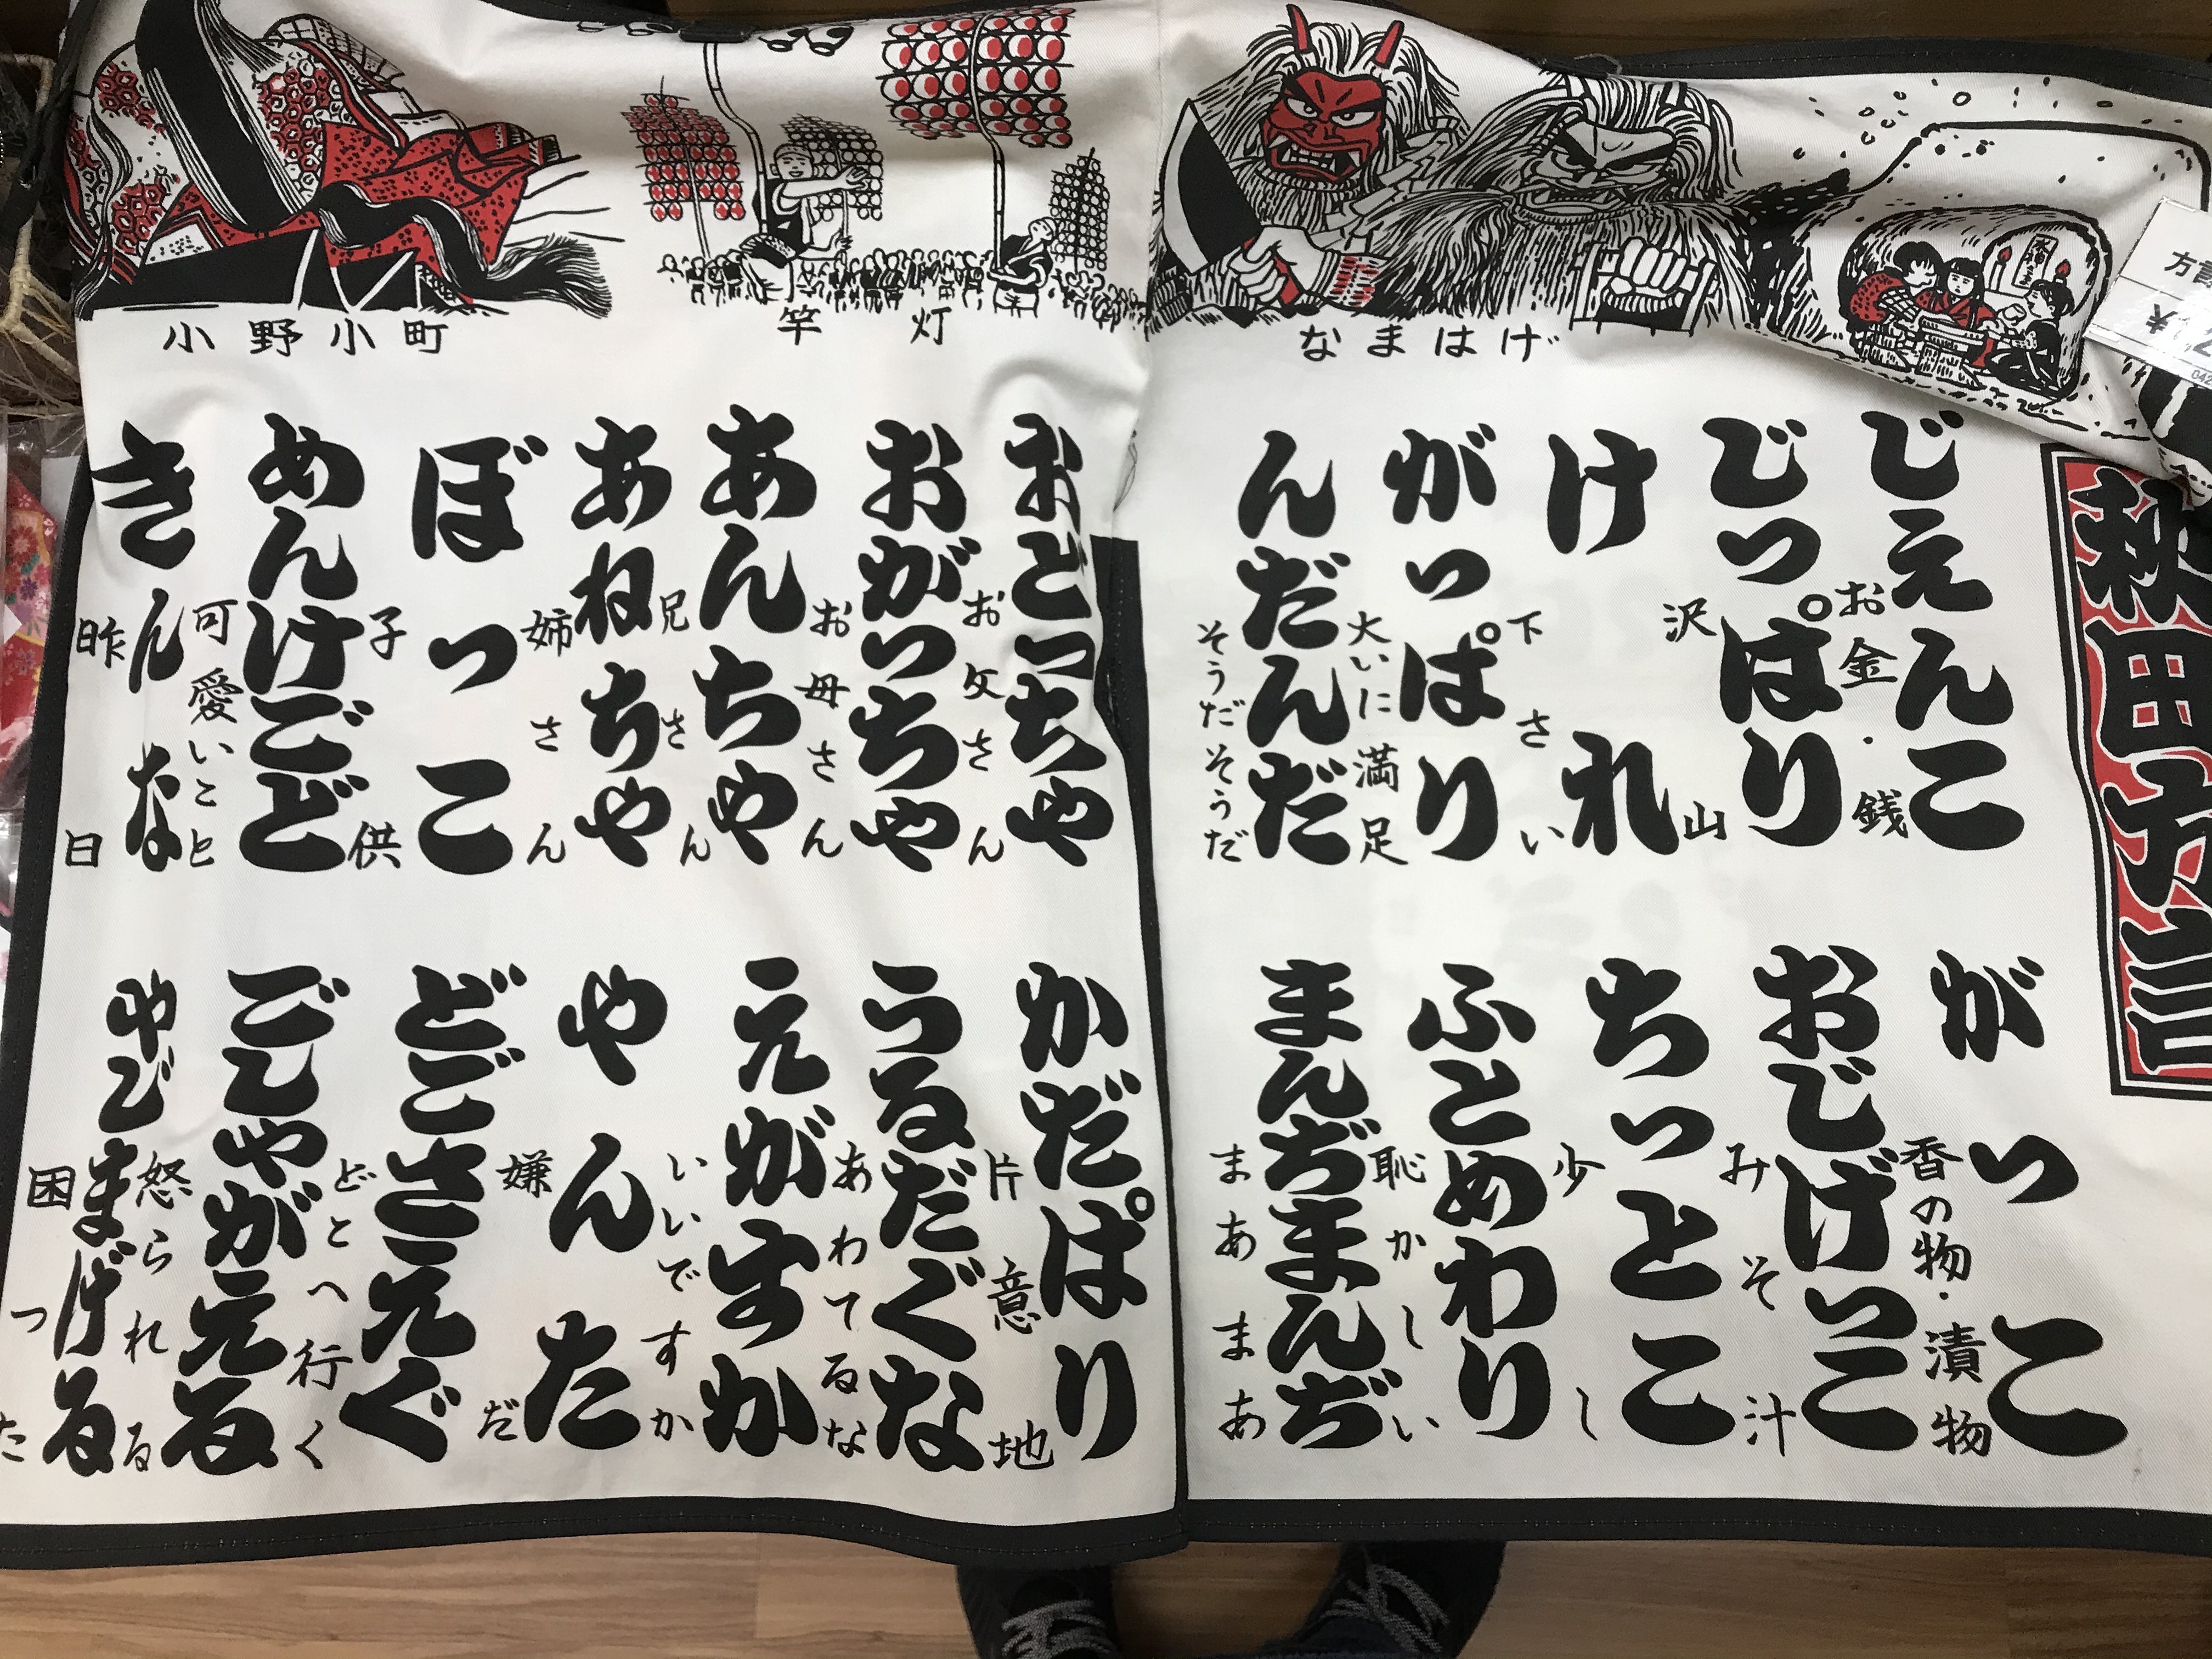 小野小町
竿灯
なまはげ
秋田方言
じぇんこ
お金・銭
じっぱり
沢山
けれ
下さい
がっぱり
大いに満足
んだんだ
そうだそうだ
がっこ
香の物・漬物
おじげっこ
みそ汁
ちっとこ
少し
ふとめわり
恥かしい
まんぢまんぢ
まあまあ
おどっちゃ
お父さん
おがっちゃ
お母さん
あんちゃ
兄さん
あねちゃ
姉さん
ぼっこ
子供
めんけごど
可愛いこと
きんな
昨日
かだぱり
片意地
うるだぐな
あわてるな
えがすか
いいですか
やんた
嫌だ
どごさえぐ
どこへ行く
ごしゃがえる
怒られる
やじまげる
困った